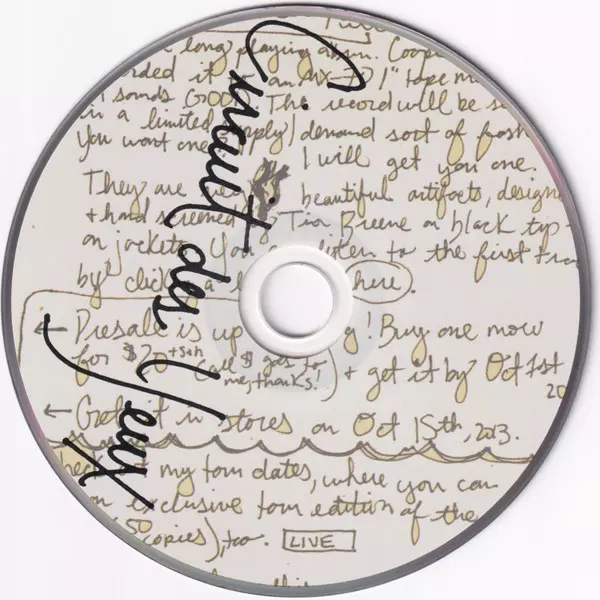 Circuit des Yeux
long playing album. Coop
rded it on an MX-70 1" tape m
sounds GOOD. The record will be s
in a limited supply/demand sort of fash
You want one I will get you one.
They are beautiful artifacts, design
+ hand screened by Tim Breene on black tip-
on jackets. You listen to the first tra
by click here.
← Presale is up ! Buy one now
for $20 + s&h
(all $ goes to
me, thanks!) + get it by Oct 1st
20
← Get it in stores on Oct 15th, 2013.
check out my tour dates, where you can
an exclusive tour edition of the
(50 copies), too. LIVE